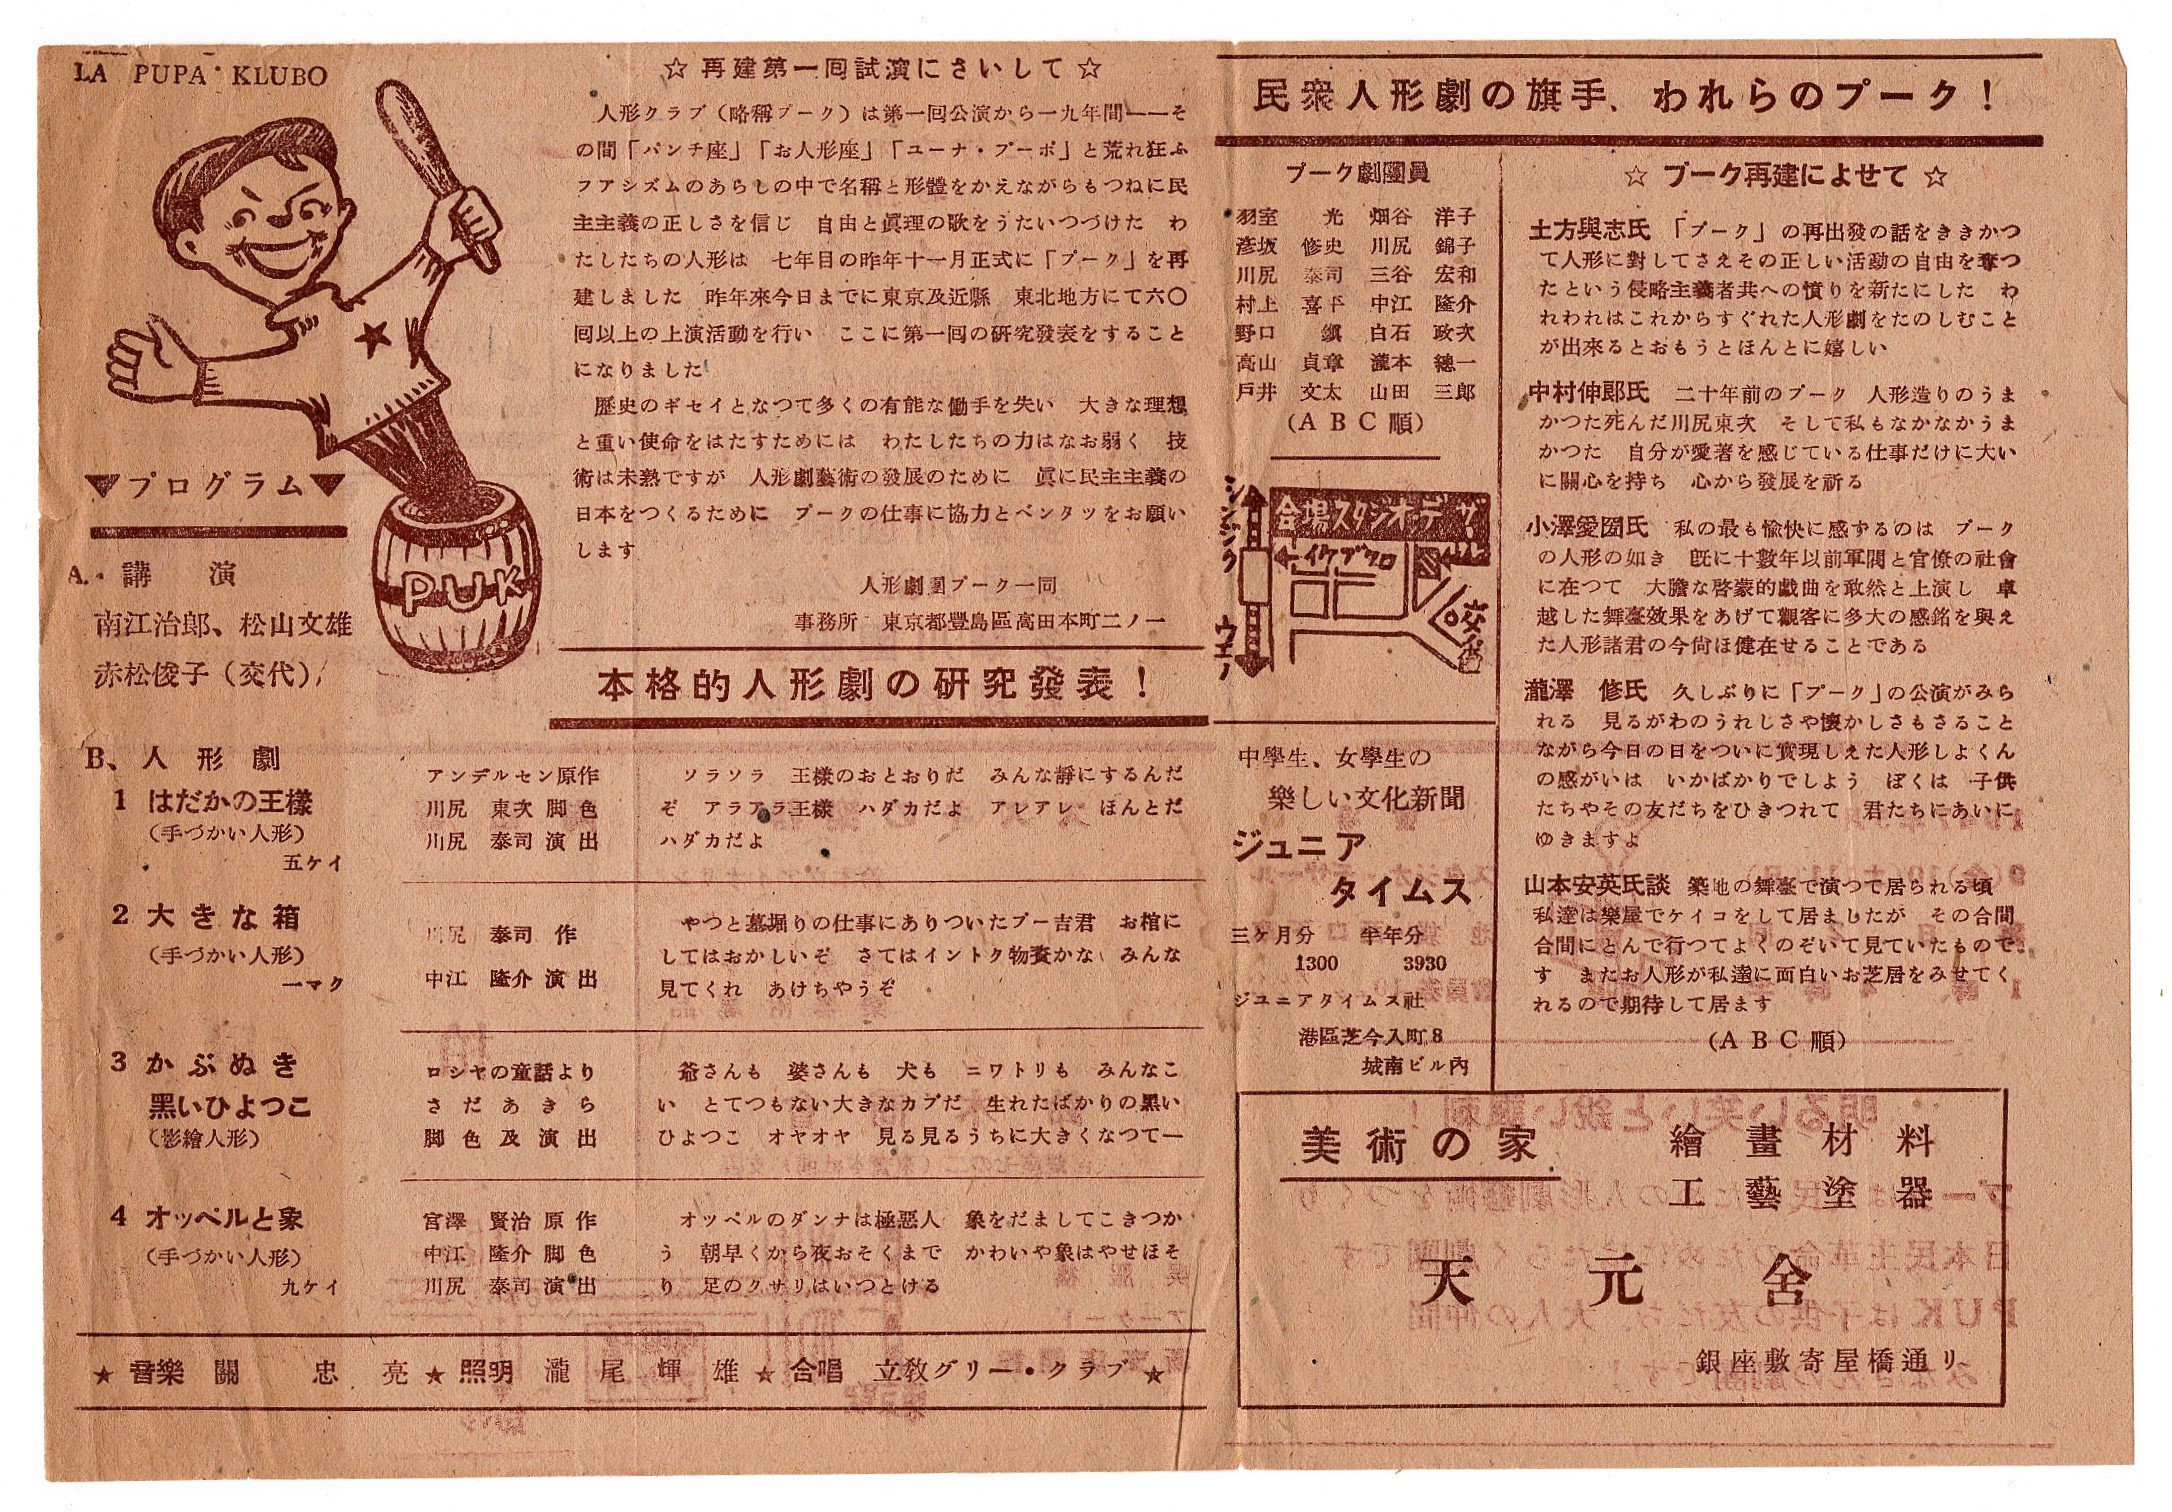 LA PUPA KLUBO
PUK
▼プログラム▼
A. 講演
南江治郎、松山文雄
赤松俊子（交代）
☆再建第一回試演にさいして☆
人形クラブ（略稱プーク）は第一回公演から一九年間——そ
の間「パンチ座」「お人形座」「ユーナ・プーポ」と荒れ狂ふ
フアシズムのあらしの中で名稱と形體をかえながらもつねに民
主主義の正しさを信じ　自由と眞理の歌をうたいつづけた　わ
たしたちの人形は　七年目の昨年十一月正式に「プーク」を再
建しました　昨年來今日までに東京及近縣　東北地方にて六〇
回以上の上演活動を行い　ここに第一回の研究發表をすること
になりました
歷史のギセイとなつて多くの有能な働手を失い　大きな理想
と重い使命をはたすためには　わたしたちの力はなお弱く　技
術は未熟ですが　人形劇藝術の發展のために　眞に民主主義の
日本をつくるために　プークの仕事に協力とベンタツをお願い
します
人形劇團プーク一同
事務所　東京都豐島區高田本町二ノ一
本格的人形劇の研究發表！
B、人形劇
1 はだかの王樣
（手づかい人形）
五ケイ
アンデルセン原作
川尻　東次　脚色
川尻　泰司　演出
ソラソラ　王樣のおとおりだ　みんな靜にするんだ
ぞ　アラアラ王樣　ハダカだよ　アレアレ　ほんとだ
ハダカだよ
2 大きな箱
（手づかい人形）
一マク
川尻　泰司　作
中江　隆介　演出
やつと墓堀りの仕事にありついたプー吉君　お棺に
してはおかしいぞ　さてはイントク物資かな　みんな
見てくれ　あけちやうぞ
3 かぶぬき
黑いひよつこ
（影繪人形）
ロシヤの童話より
さだあきら
脚色及演出
爺さんも　婆さんも　犬も　ニワトリも　みんなこ
い　とてつもない大きなカブだ　生れたばかりの黑い
ひよつこ　オヤオヤ　見る見るうちに大きくなつて—
4 オッペルと象
（手づかい人形）
九ケイ
宮澤　賢治　原作
中江　隆介　脚色
川尻　泰司　演出
オッペルのダンナは極惡人　象をだましてこきつか
う　朝早くから夜おそくまで　かわいや象はやせほそ
り　足のクサリはいつとける
★音樂　關　忠亮★照明　瀧尾輝雄★合唱　立敎グリー・クラブ★
民衆人形劇の旗手、われらのプーク！
プーク劇團員
羽室　光　畑谷　洋子
彥坂　修史　川尻　錦子
川尻　泰司　三谷　宏和
村上　喜平　中江　隆介
野口　鎭　白石　政次
高山　貞章　瀧本　總一
戸井　文太　山田　三郎
(ＡＢＣ順)
シンジク
会場スタジオ・デ・ザール
←イケブクロ
交番
ウエノ
中學生、女學生の
樂しい文化新聞
ジュニア
タイムス
三ケ月分　半年分
1300　3930
ジユニアタイムス社
港區芝今入町8
城南ビル內
☆ プーク再建によせて ☆
土方與志氏　「プーク」の再出發の話をききかつ
て人形に對してさえその正しい活動の自由を奪つ
たという侵略主義者共への憤りを新たにした　わ
れわれはこれからすぐれた人形劇をたのしむこと
が出來るとおもうとほんとに嬉しい
中村伸郎氏　二十年前のプーク　人形造りのうま
かつた死んだ川尻東次　そして私もなかなかうま
かつた　自分が愛著を感じている仕事だけに大い
に關心を持ち　心から發展を祈る
小澤愛圀氏　私の最も愉快に感ずるのは　プーク
の人形の如き　旣に十數年以前軍閥と官僚の社會
に在つて　大膽な啓蒙的戲曲を敢然と上演し　卓
越した舞臺效果をあげて觀客に多大の感銘を與え
た人形諸君の今尙ほ健在せることである
瀧澤　修氏　久しぶりに「プーク」の公演がみら
れる　見るがわのうれしさや懷かしさもさること
ながら今日の日をついに實現しえた人形しよくん
の感がいは　いかばかりでしよう　ぼくは　子供
たちやその友だちをひきつれて　君たちにあいに
ゆきますよ
山本安英氏談　築地の舞臺で演つて居られる頃
私達は樂屋でケイコをして居ましたが　その合間
合間にとんで行つてよくのぞいて見ていたもので
す　またお人形が私達に面白いお芝居をみせてく
れるので期待して居ます
(ＡＢＣ順)
美術の家
繪畫材料
工藝塗器
天元舎
銀座數寄屋橋通り